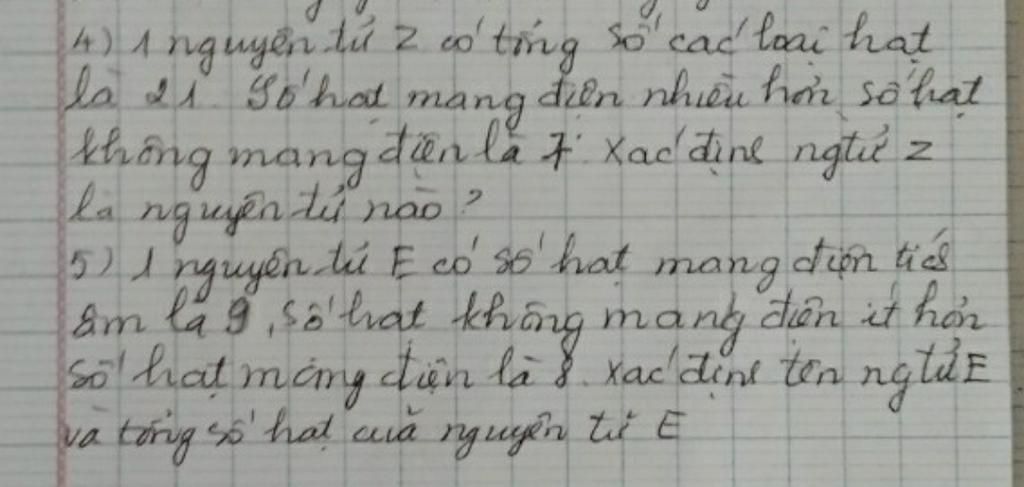 4) 1 nguyên tử Z có tổng số các loại hạt
là 21. Số hạt mang điện nhiều hơn số hạt
không mang điện là 7. Xác định ngtử Z
là nguyên tử nào?
5) 1 nguyên tử E có số hạt mang điện tích
âm là 9, số hạt không mang điện ít hơn
số hạt mang điện là 8. Xác định tên ngtử E
và tổng số hạt của nguyên tử E